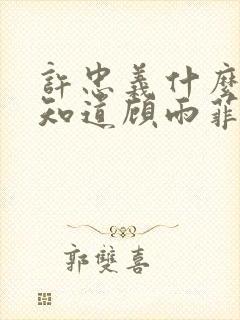 許忠義什麼
知道顧雨菲
郭雙喜